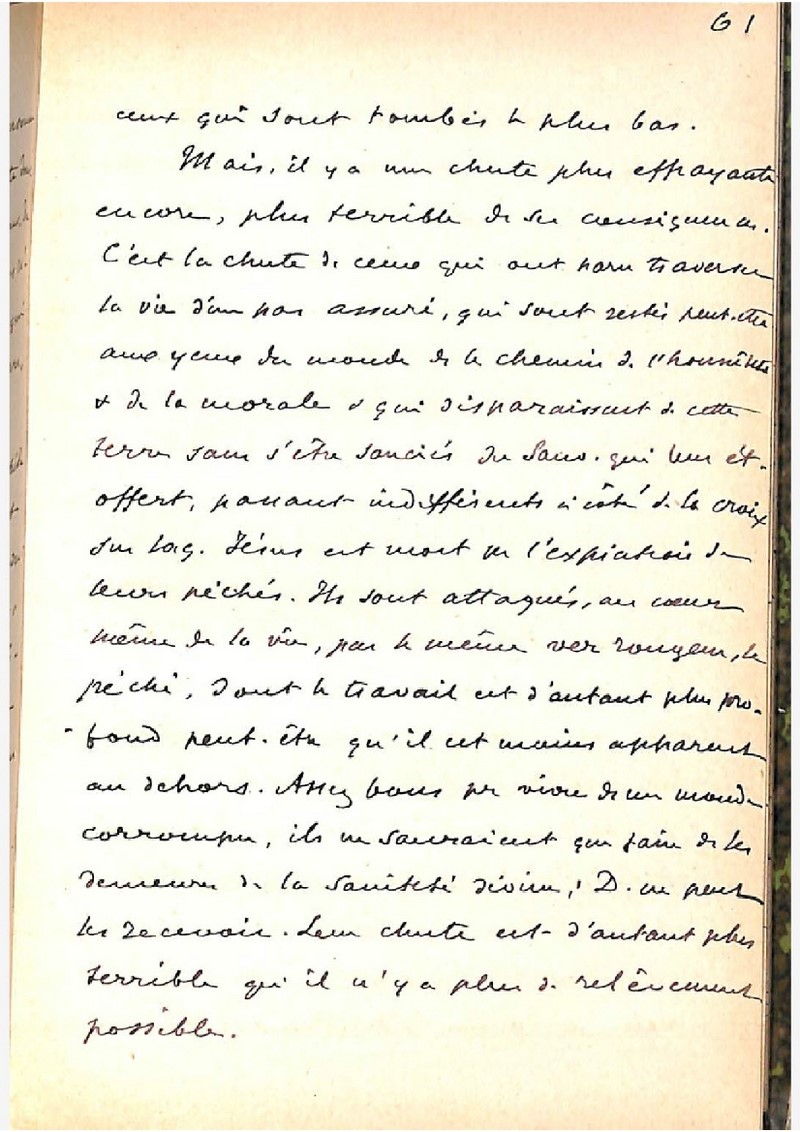 61
ceux qui sont tombés le plus bas.
Mais, il y a une chute plus effrayante
encore, plus terrible ds ses conséquences.
C'est la chute de ceux qui ont paru traverser
la vie d'un pas assuré, qui sont restés peut-être
aux yeux du monde ds le chemin de l'honnêteté
& de la morale & qui disparaissent de cette
terre sans s'être souciés du Sauv. qui leur ét.
offert, passant indifférents à côté de la croix
sur laq. Jésus est mort pr l'expiation de
leurs péchés. Ils sont attaqués, au cœur
même de la vie, par le même ver rongeur, le
péché, dont le travail est d'autant plus pro-
fond peut-être qu'il est moins apparent
au dehors. Assez bons pr vivre ds un monde
corrompu, ils ne sauraient que faire ds les
demeures de la sainteté divine; D. ne peut
les recevoir. Leur chute est d'autant plus
terrible qu'il n'y a plus de relèvement
possible.